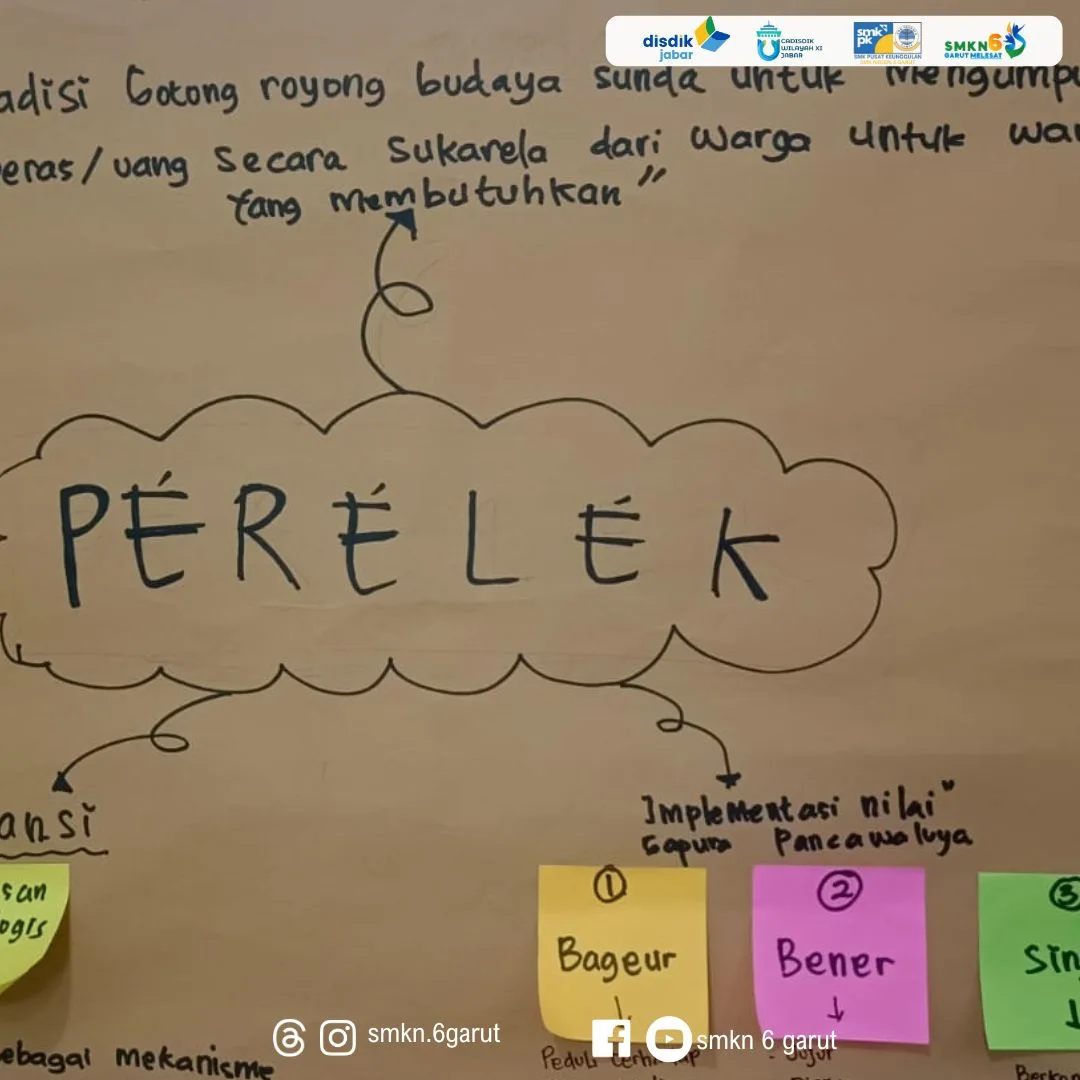 disdik
jabar
CADISDIK
WILAYAH XI
JABAR
smk
pk
SMK PUSAT KEUNGGULAN
SMKN6
GARUT MELESAT
adisi Gotong royong budaya sunda untuk Mengumpu
eras/uang Secara Sukarela dari Warga untuk wa
Yang membutuhkan"
PÉRÉLÉK
ansi
Implementasi nilai"
Gapura Pancawaluya
san
ogis
1
Bageur
2
Bener
3
Sin
ebagai mekanisme
Peduli
: Jujur
smkn.6garut
smkn 6 garut